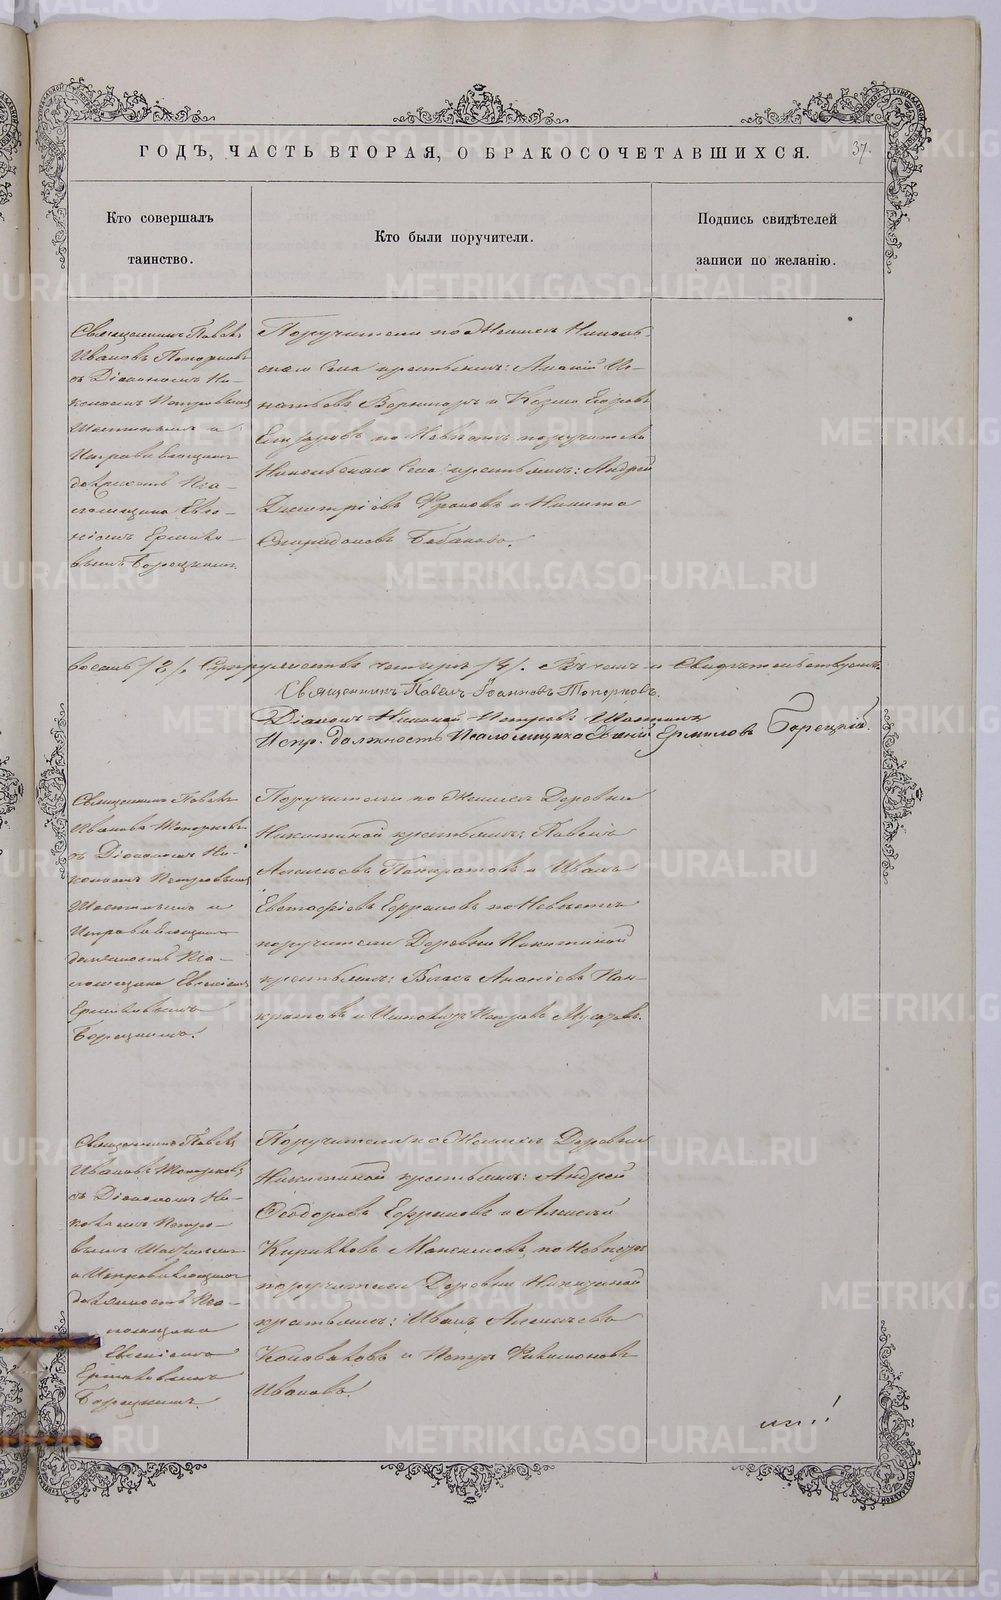 ГОДЪ, ЧАСТЬ ВТОРАЯ, О БРАКОСОЧЕТАВШИХСЯ.
37.
Кто совершалъ
таинство.
Кто были поручители.
Подпись свидѣтелей
записи по желанію.
Священникъ Павелъ
Ивановъ Топорковъ
съ Діакономъ Ни-
колаемъ Петровымъ
и
Исправляющимъ
должность Пса-
ломщика Евге-
ніемъ Ермило-
вымъ Борецкимъ.
Поручители по Женихѣ Николь-
скаго Села крестьяне:
и Козма
по Невѣстѣ поручители
Никольскаго Села крестьяне: Андрей
Димитріевъ и Никита
Спиридоновъ Бабановъ.
восемь /8/. Супружествъ четыре /4/. Въ чемъ и Свидѣтельствуемъ:
Священникъ Павелъ Іоанновъ Топорковъ.
Діаконъ Николай Петровъ
Испр. должность Псаломщика Евгеній Ермиловъ Борецкій.
Священникъ Павелъ
Ивановъ Топорковъ
съ Діакономъ Ни-
колаемъ Петровымъ
и
Исправляющимъ
должность Пса-
ломщика Евгеніемъ
Ермиловымъ
Борецкимъ.
Поручители по Женихѣ Деревни
Никитиной крестьяне: Павелъ
Алексѣевъ Панкратовъ и Иванъ
Ефремовъ по Невѣстѣ
поручители Деревни Никитиной
крестьяне: Власъ Ананіевъ Пан-
кратовъ и Петровъ
Священникъ Павелъ
Ивановъ Топорковъ
съ Діакономъ Ни-
колаемъ Петро-
вымъ
и Исправляющимъ
должность Пса-
ломщика
Евгеніемъ
Ермиловымъ
Борецкимъ.
Поручители по Женихѣ Деревни
Никитиной крестьяне: Андрей
Ѳеодоровъ Ефремовъ и Алексѣй
Кирилловъ Максимовъ, по Невѣстѣ
поручители Деревни Никитиной
крестьяне: Иванъ Алексѣевъ
Коноваловъ и Петръ Филимоновъ
Ивановъ.
METRIKI.GASO-URAL.RU